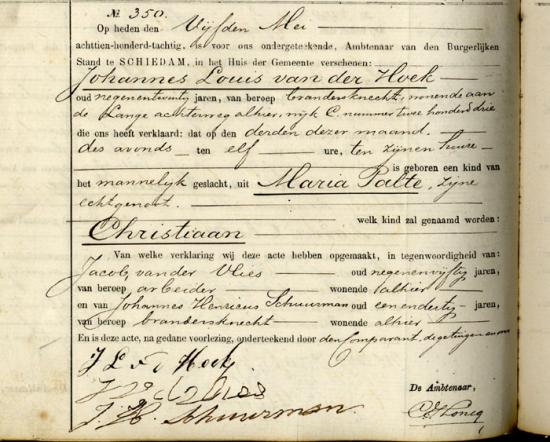 No 350.
Op heden den Vijfden Mei
achttien-honderd-tachtig, is voor ons ondergeteekende, Ambtenaar van den Burgerlijken
Stand te SCHIEDAM, in het Huis der Gemeente verschenen:
Johannes Louis van der Hoek
oud negenentwintig jaren, van beroep brandersknecht, wonende aan
de Lange achterweg alhier, wijk C. nummer twee honderd drie
die ons heeft verklaard: dat op den derden dezer maand.
des avonds ten elf ure, ten zijnen huize
is geboren een kind van
het mannelijk geslacht, uit Maria Palte, zijne
echtgenoot.
welk kind zal genaamd worden:
Christiaan
Van welke verklaring wij deze acte hebben opgemaakt, in tegenwoordigheid van:
Jacob van der Vlies oud negenenvijftig jaren,
van beroep arbeider wonende alhier
en van Johannes Henricus Schuurman oud eenendertig jaren,
van beroep brandersknecht wonende alhier
En is deze acte, na gedane voorlezing, onderteekend door den Comparant, de getuigen en ons
J L v d Hoek
De Ambtenaar,
J. H. Schuurman.